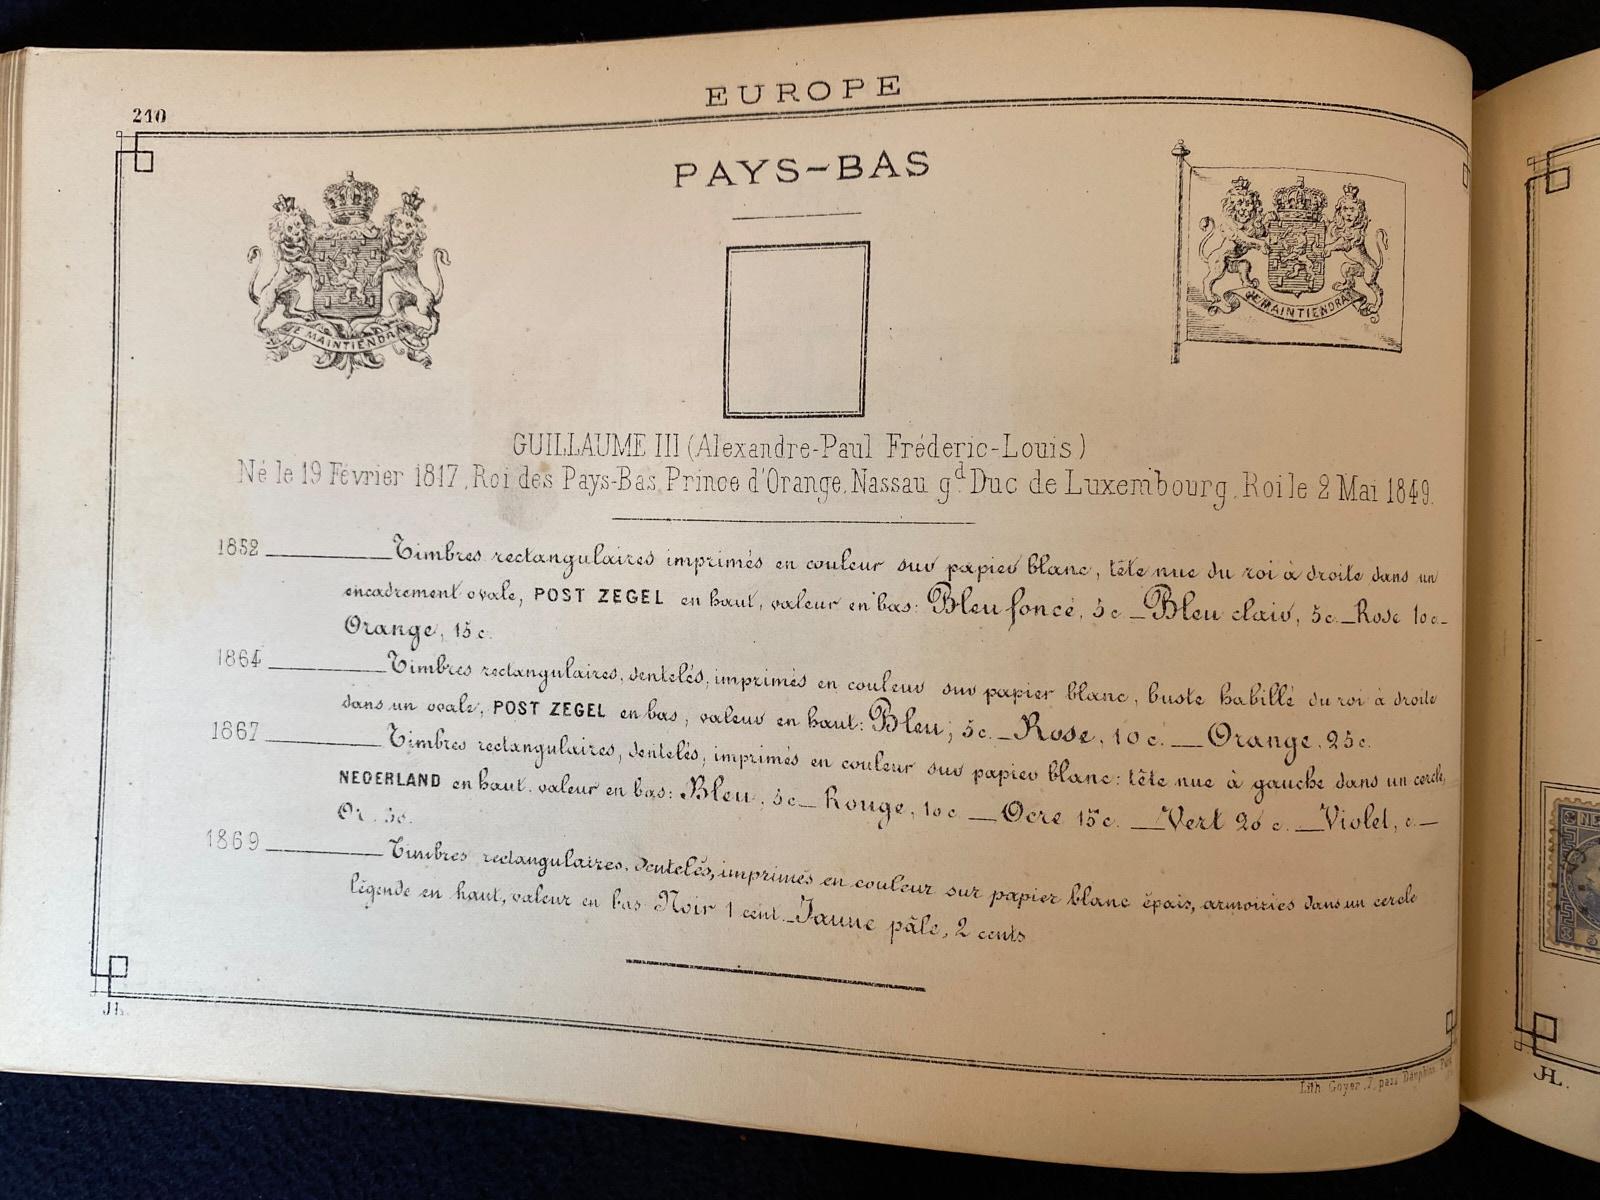 EUROPE
210
PAYS-BAS
JE MAINTIENDRAI
JE MAINTIENDRAI
GUILLAUME III (Alexandre-Paul Fréderic-Louis)
Né le 19 Février 1817, Roi des Pays-Bas, Prince d'Orange, Nassau gd. Duc de Luxembourg, Roi le 2 Mai 1849.
1852 Timbres rectangulaires imprimés en couleur sur papier blanc, tête nue du roi à droite dans un
encadrement ovale, POST ZEGEL en haut, valeur en bas: Bleu foncé, 5c _ Bleu clair, 5c _ Rose 10c _
Orange, 15c.
1864 Timbres rectangulaires, dentelés, imprimés en couleur sur papier blanc, buste habillé du roi à droite
dans un ovale, POST ZEGEL en bas, valeur en haut: Bleu, 5c _ Rose, 10c. _ Orange, 25c.
1867 Timbres rectangulaires, dentelés, imprimés en couleur sur papier blanc: tête nue à gauche dans un cercle,
NEDERLAND en haut, valeur en bas: Bleu, 5c _ Rouge, 10c _ Ocre 15c. _ Vert 20c. _ Violet, c. _
Or.
1869 Timbres rectangulaires, dentelés, imprimés en couleur sur papier blanc épais, armoiries dans un cercle
légende en haut, valeur en bas Noir 1 cent _ Jaune pâle, 2 cents
JL.
Lith. Goyer, 7, pass Dauphine, Paris
NE
JL.